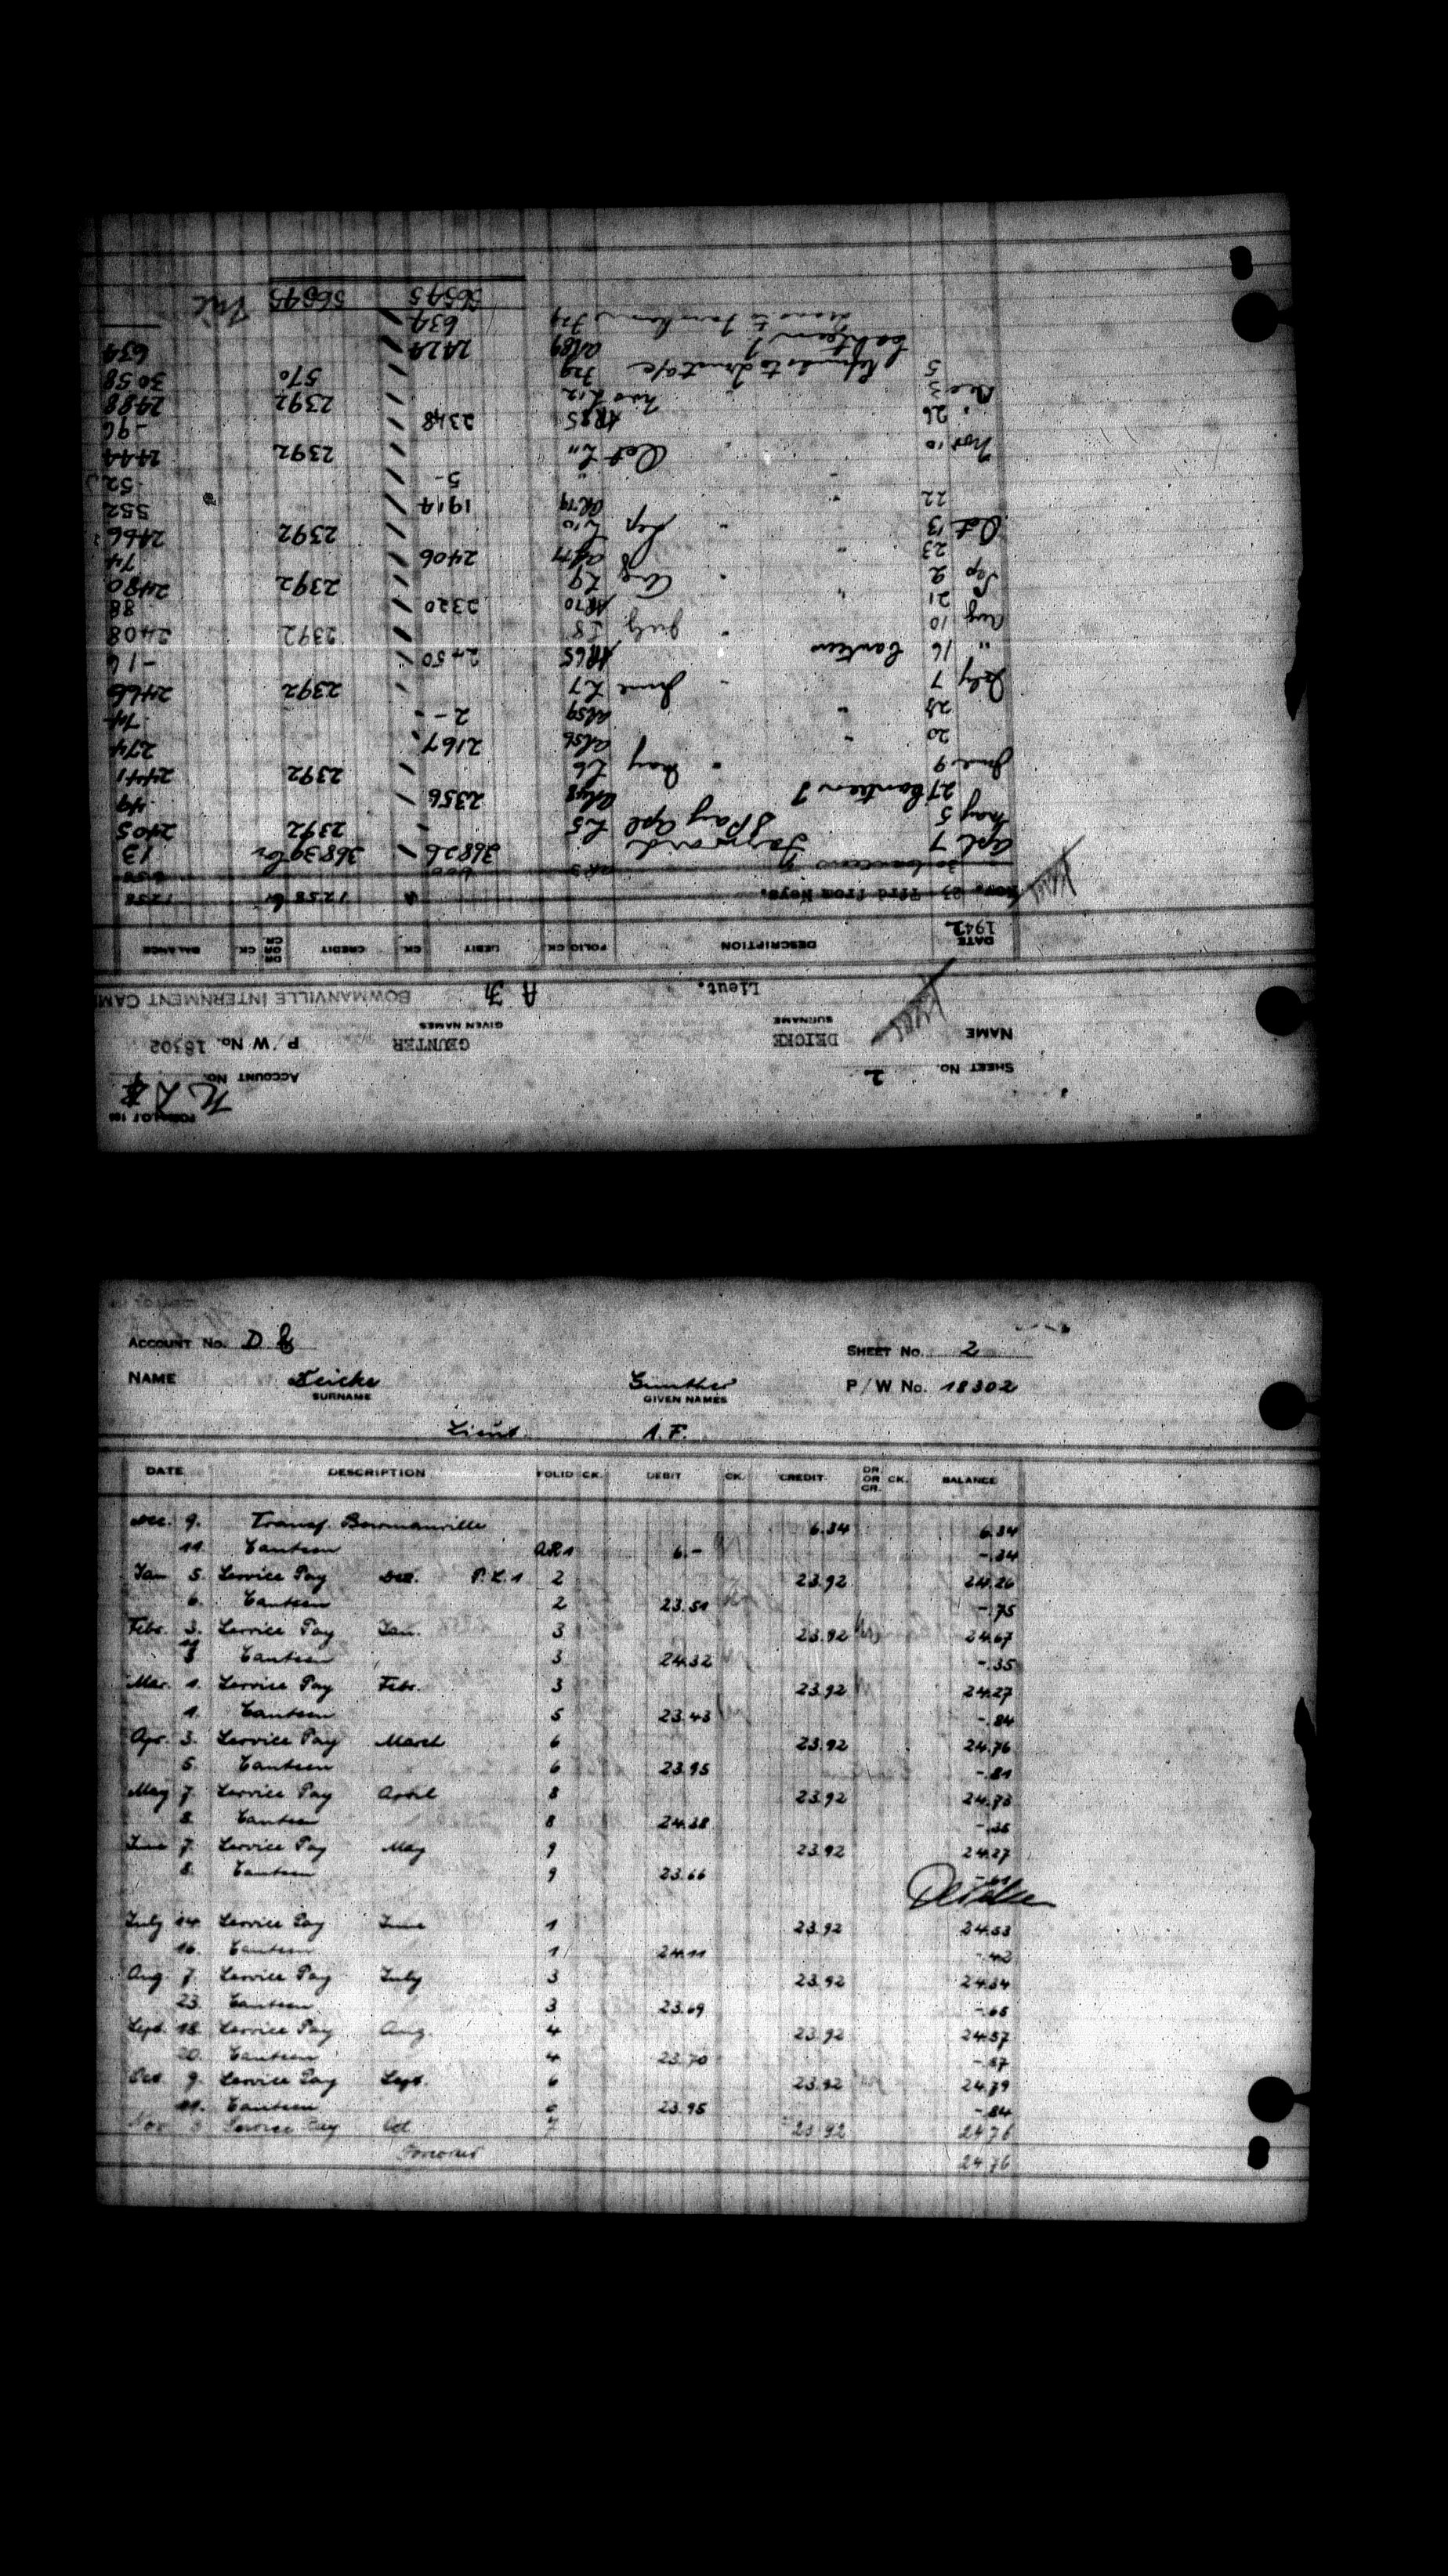 FORM LOT 198
SHEET No. 2 ACCOUNT No.
NAME DEICKE GEUNTER P/W No. 18302
SURNAME GIVEN NAMES
Lieut. A F BOWMANVILLE INTERNMENT CAMP
DATE DESCRIPTION FOLIO CK. DEBIT CK. CREDIT DR OR CR. CK. BALANCE
1942
Nov. 23 Tfrd from Neys. 1258 Cr 1258
30 Canteen 600 658
Apl 7 Forward 36826 36839 Cr 13
May 5 S Pay Apl L5 2392 2405
27 Canteen 2356 49
June 9 " May L6 2392 2441
20 " 2167 274
28 " AR59 2- 74
July 7 " June L7 2392 2466
" 16 Canteen AR65 2450 -16
Aug 10 " July L8 2392 2408
21 " AR70 2320 88
Sep 2 " Aug L9 2392 2480
23 " AR77 2406 74
Oct 13 " Sep L10 2392 2466
22 " AR79 1914 552
" " 5- 52
Nov 10 " Oct L11 2392 2444
" 26 " AR85 2348 -96
Dec 3 " Nov L12 2392 2488
5 Refunds to Trust a/c J29 570 3058
Canteen AR89 2424 634
J29 634
56545 56545 Nil
ACCOUNT No. D 8 SHEET No. 2
NAME Deicke Günther P/W No. 18302
SURNAME GIVEN NAMES
Lieut. A.F.
DATE DESCRIPTION FOLIO CK. DEBIT CK. CREDIT DR OR CR. CK. BALANCE
Dec. 9. Transf. Bowmanville 6.34 6.34
11. Canteen AR1 6.- -.34
Jan 5. Service Pay Dec. P.L.1 2 23.92 24.26
6. Canteen 2 23.51 -.75
Febr. 3. Service Pay Jan. 3 23.92 24.67
Canteen 3 24.32 -.35
Mar. 1. Service Pay Febr. 3 23.92 24.27
1. Canteen 5 23.43 -.84
Apr. 3. Service Pay March 6 23.92 24.76
5. Canteen 6 23.95 -.81
May 7. Service Pay April 8 23.92 24.73
8. Canteen 8 24.38 -.35
June 7. Service Pay May 9 23.92 24.27
8. Canteen 9 23.66 -.61
Deicke
July 14. Service Pay June 1 23.92 24.53
16. Canteen 1 24.11 -.42
Aug. 7. Service Pay July 3 23.92 24.34
23. Canteen 3 23.69 -.65
Sept. 18. Service Pay Aug. 4 23.92 24.57
20. Canteen 4 23.70 -.87
Oct. 9. Service Pay Sept. 6 23.92 24.79
11. Canteen 6 23.95 -.84
Nov Service Pay Oct 7 23.92 24.76
Forward 24.76